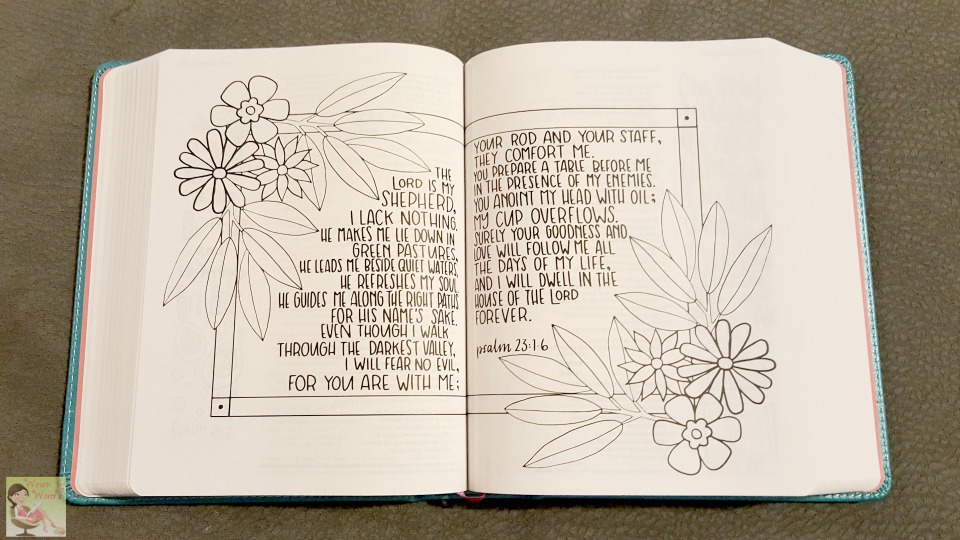 THE
LORD IS MY
SHEPHERD,
I LACK NOTHING.
HE MAKES ME LIE DOWN IN
GREEN PASTURES,
HE LEADS ME BESIDE QUIET WATERS,
HE REFRESHES MY SOUL.
HE GUIDES ME ALONG THE RIGHT PATHS
FOR HIS NAME'S SAKE.
EVEN THOUGH I WALK
THROUGH THE DARKEST VALLEY,
I WILL FEAR NO EVIL,
FOR YOU ARE WITH ME;
YOUR ROD AND YOUR STAFF,
THEY COMFORT ME.
YOU PREPARE A TABLE BEFORE ME
IN THE PRESENCE OF MY ENEMIES.
YOU ANOINT MY HEAD WITH OIL;
MY CUP OVERFLOWS.
SURELY YOUR GOODNESS AND
LOVE WILL FOLLOW ME ALL
THE DAYS OF MY LIFE,
AND I WILL DWELL IN THE
HOUSE OF THE LORD
FOREVER.
psalm 23:1-6